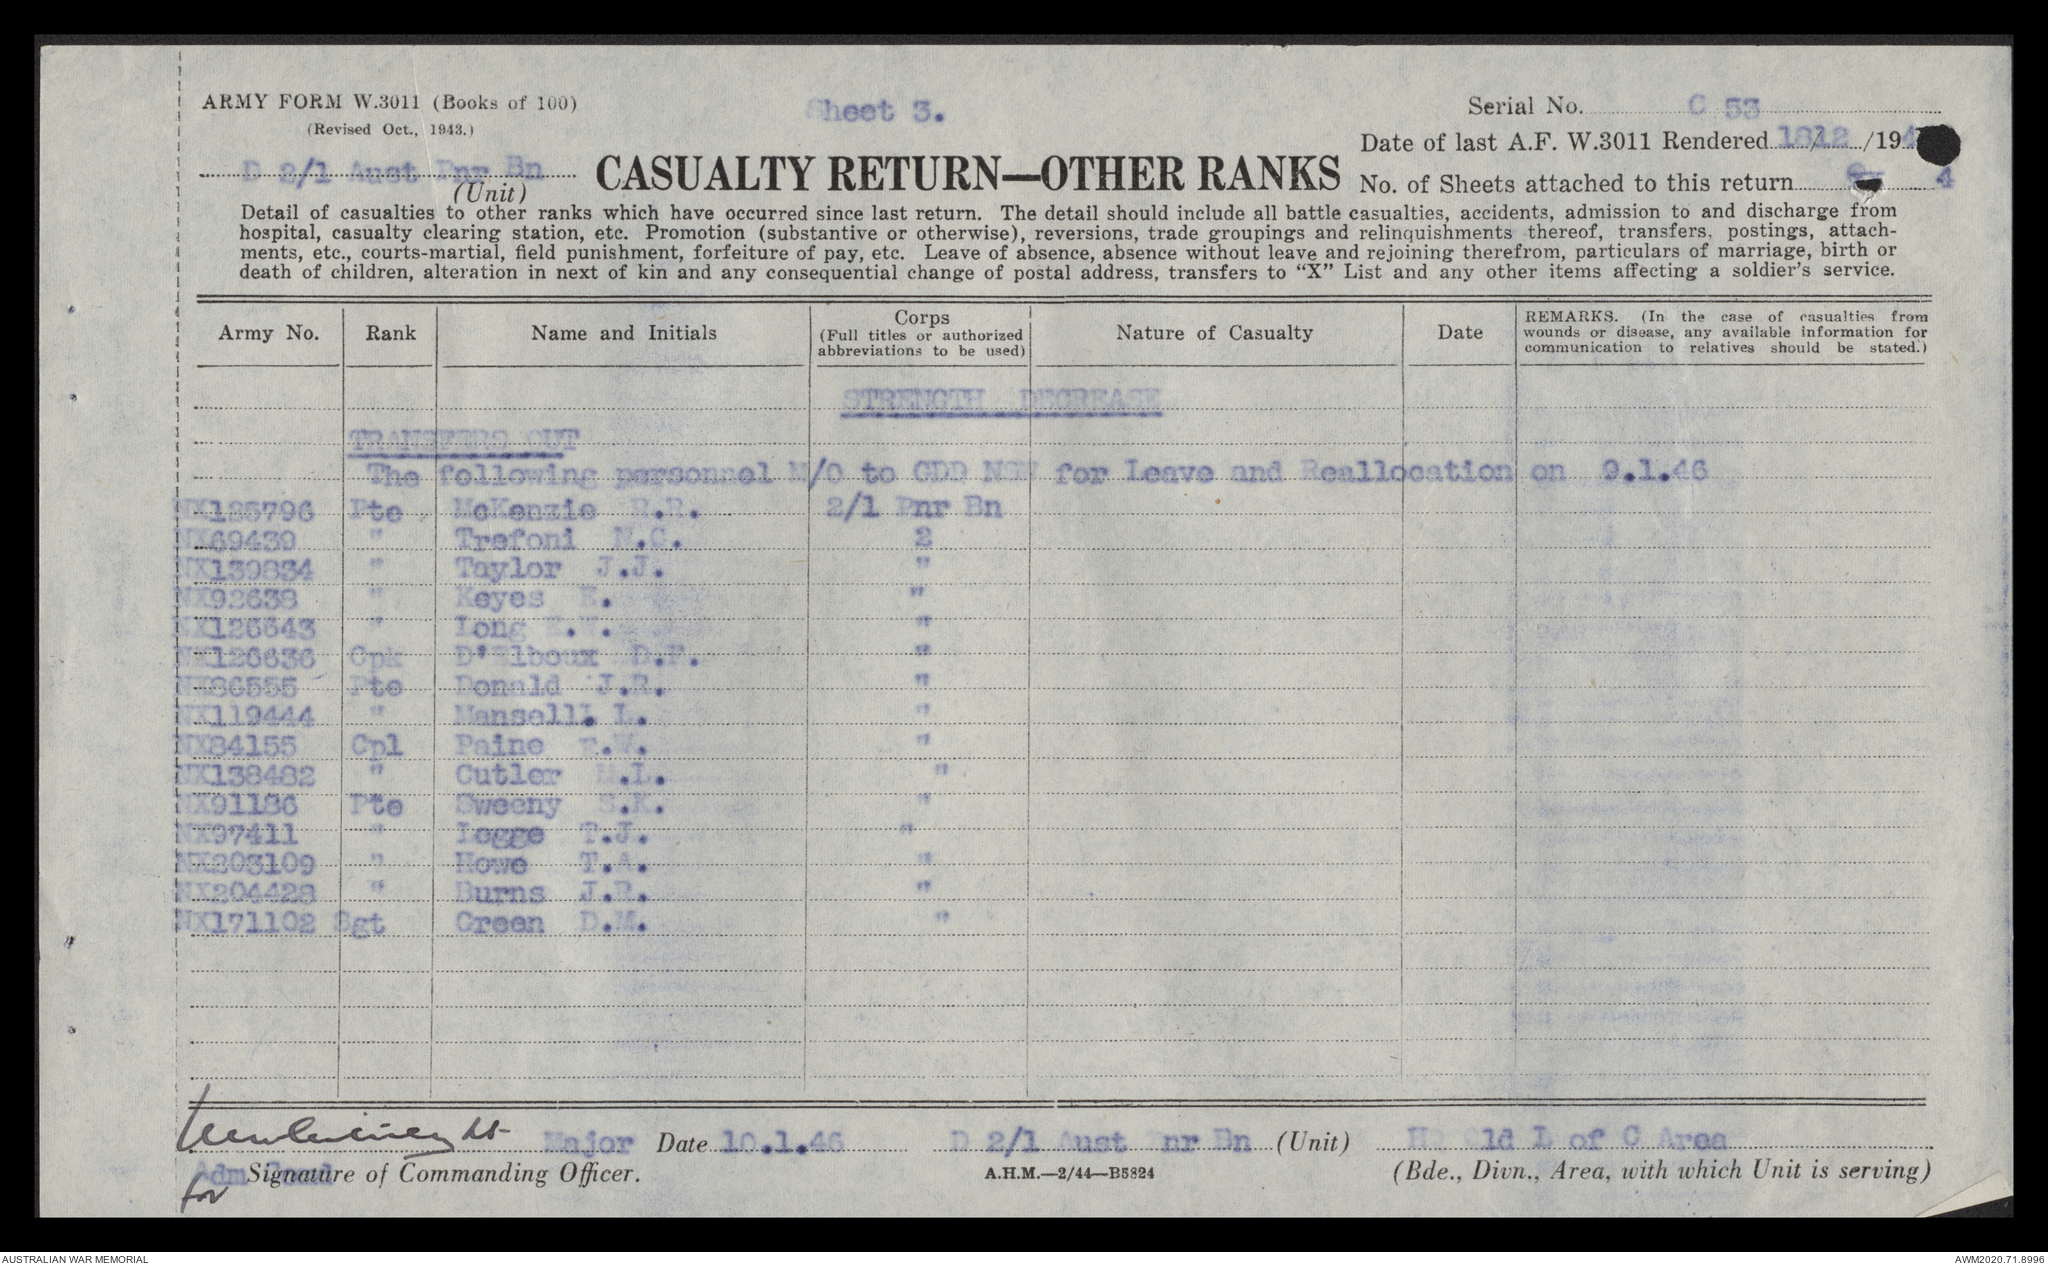 ARMY FORM W.3011 (Books of 100)
(Revised Oct., 1943.)
Sheet 3.
Serial No. C 53
Date of last A.F. W.3011 Rendered 18/12/194
D 2/1 Aust Pnr Bn
(Unit)
CASUALTY RETURN—OTHER RANKS
No. of Sheets attached to this return 4
Detail of casualties to other ranks which have occurred since last return. The detail should include all battle casualties, accidents, admission to and discharge from
hospital, casualty clearing station, etc. Promotion (substantive or otherwise), reversions, trade groupings and relinquishments thereof, transfers, postings, attach-
ments, etc., courts-martial, field punishment, forfeiture of pay, etc. Leave of absence, absence without leave and rejoining therefrom, particulars of marriage, birth or
death of children, alteration in next of kin and any consequential change of postal address, transfers to "X" List and any other items affecting a soldier's service.
Army No. Rank Name and Initials Corps (Full titles or authorized abbreviations to be used) Nature of Casualty Date REMARKS. (In the case of casualties from wounds or disease, any available information for communication to relatives should be stated.)
STRENGTH DECREASE
TRANSFERS OUT
The following personnel M/O to GDD NSW for Leave and Reallocation on 9.1.46
NX125796 Pte McKenzie R.R. 2/1 Pnr Bn
NX69439 " Trefoni M.C. 2
NX139834 " Taylor J.J. "
NX92638 " Keyes E. "
NX126643 " Long "
NX126636 Cpk D'Elboux D.F. "
NX86555 Pte Donald J.R. "
NX119444 " Mansell. L. "
NX84155 Cpl Paine E.W. "
NX138482 " Cutler M.L. "
NX91186 Pte Sweeny S.K. "
NX97411 " Legge T.J. "
NX203109 " Howe T.A. "
NX204428 " Burns J.R. "
NX171102 Sgt Green D.M. "
Major Date 10.1.46 D 2/1 Aust Pnr Bn (Unit) HQ Qld L of C Area
Adm Comd
for
Signature of Commanding Officer.
A.H.M.—2/44—B5824
(Bde., Divn., Area, with which Unit is serving)
AUSTRALIAN WAR MEMORIAL
AWM2020.71.8996